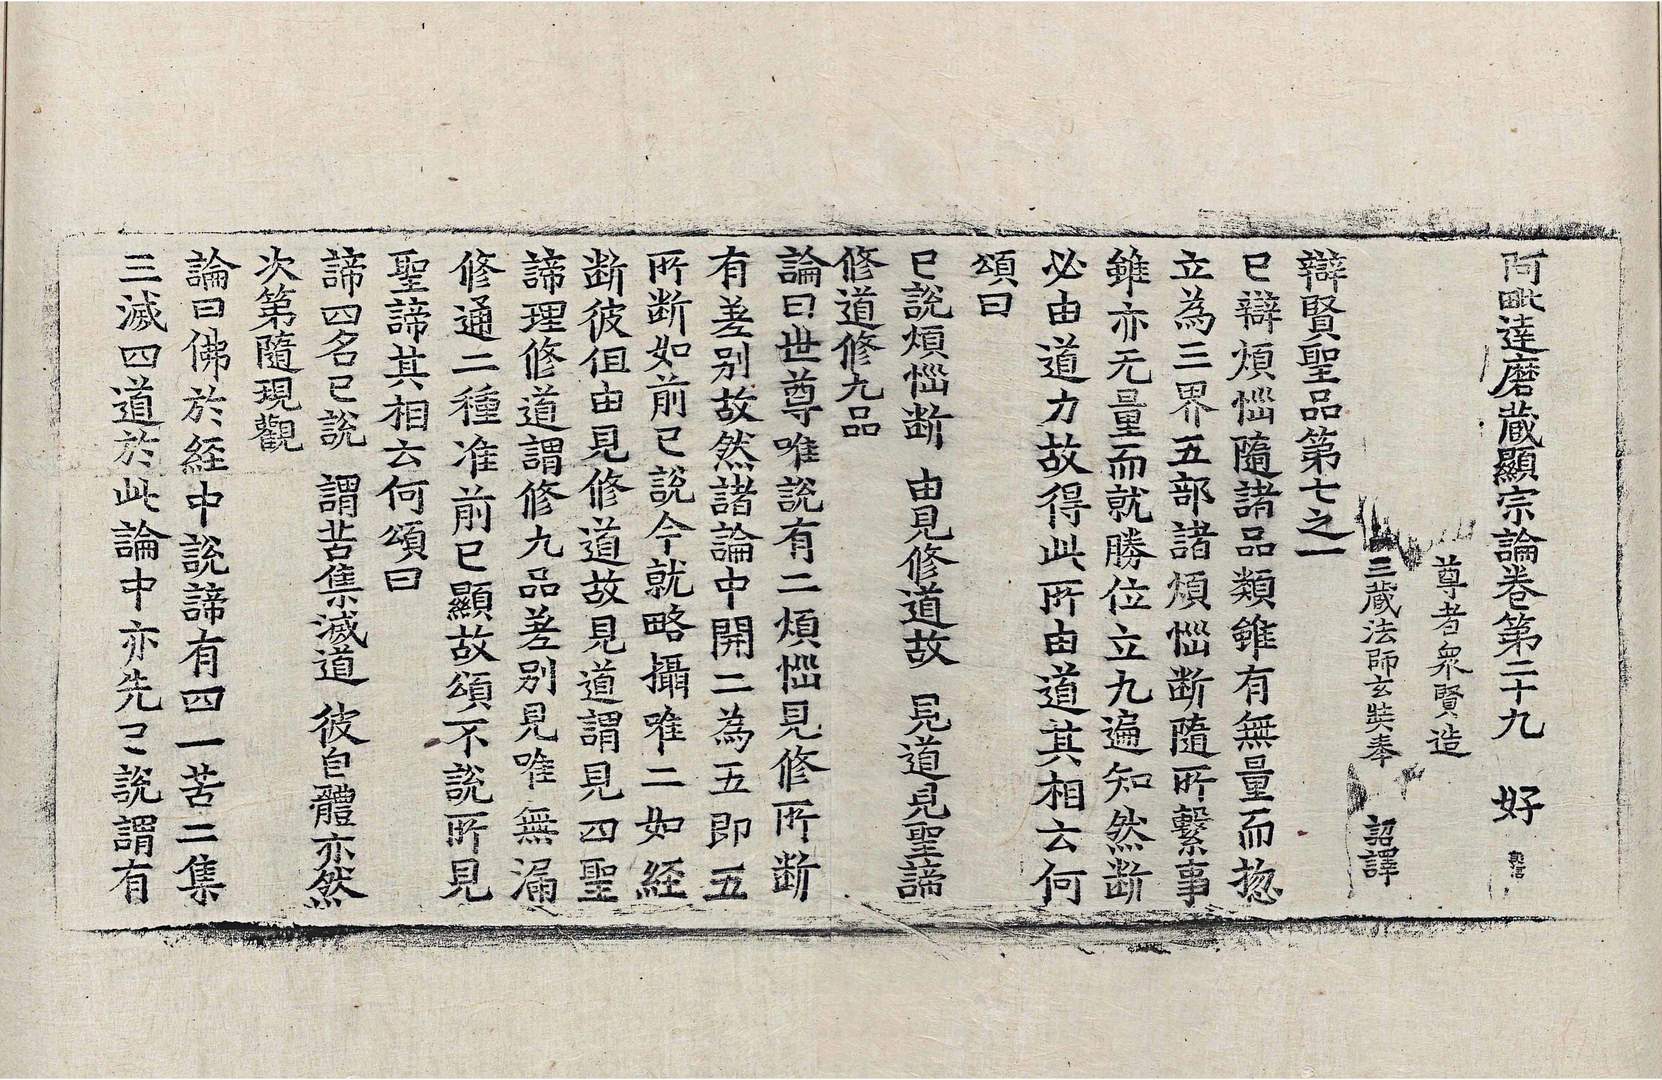 阿毗達磨藏顯宗論卷第二十九　好
尊者衆賢造
三藏法師玄奘奉　詔譯
辯賢聖品第七之一
已辯煩惱隨諸品類雖有無量而揔
立為三界五部諸煩惱断隨所繫事
雖亦无量而就勝位立九遍知然断
必由道力故得此所由道其相云何
頌曰
已說煩惱断　由見修道故　見道見聖諦
修道修九品
論曰世尊唯說有二煩惱見修所断
有差别故然諸論中開二為五即五
所断如前已說今就略攝唯二如経
断彼但由見修道故見道謂見四聖
諦理修道謂修九品差别見唯無漏
修通二種准前已顯故頌不說所見
聖諦其相云何頌曰
諦四名已說　謂苦集滅道　彼自體亦然
次第隨現觀
論曰佛於経中說諦有四一苦二集
三滅四道於此論中亦先已說謂有